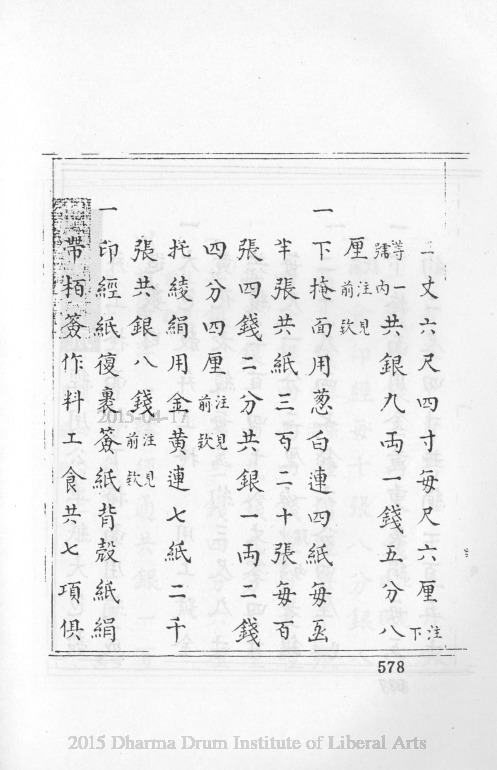 二丈六尺四寸每尺六厘注下
等一號內共銀九両一錢五分八
厘注見前欵
一下掩面用葱白連四紙每函
半張共紙三百二十張每百
張四錢二分共銀一両二錢
四分四厘注見前欵
托綾絹用金黄連七紙二千
張共銀八錢注見前欵
一印經紙復裹簽紙背殼紙絹
帶栢簽作料工食共七項俱
578
2015-04-17
2015 Dharma Drum Institute of Liberal Arts